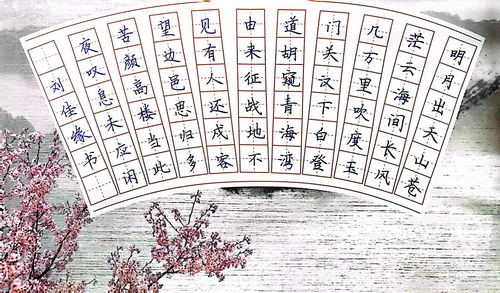 明月出天山苍
茫云海间长风
几万里吹度玉
门关汉下白登
道胡窥青海湾
由来征战地不
见有人还戍客
望边邑思归多
苦颜高楼当此
夜叹息未应闲
刘佳缘书